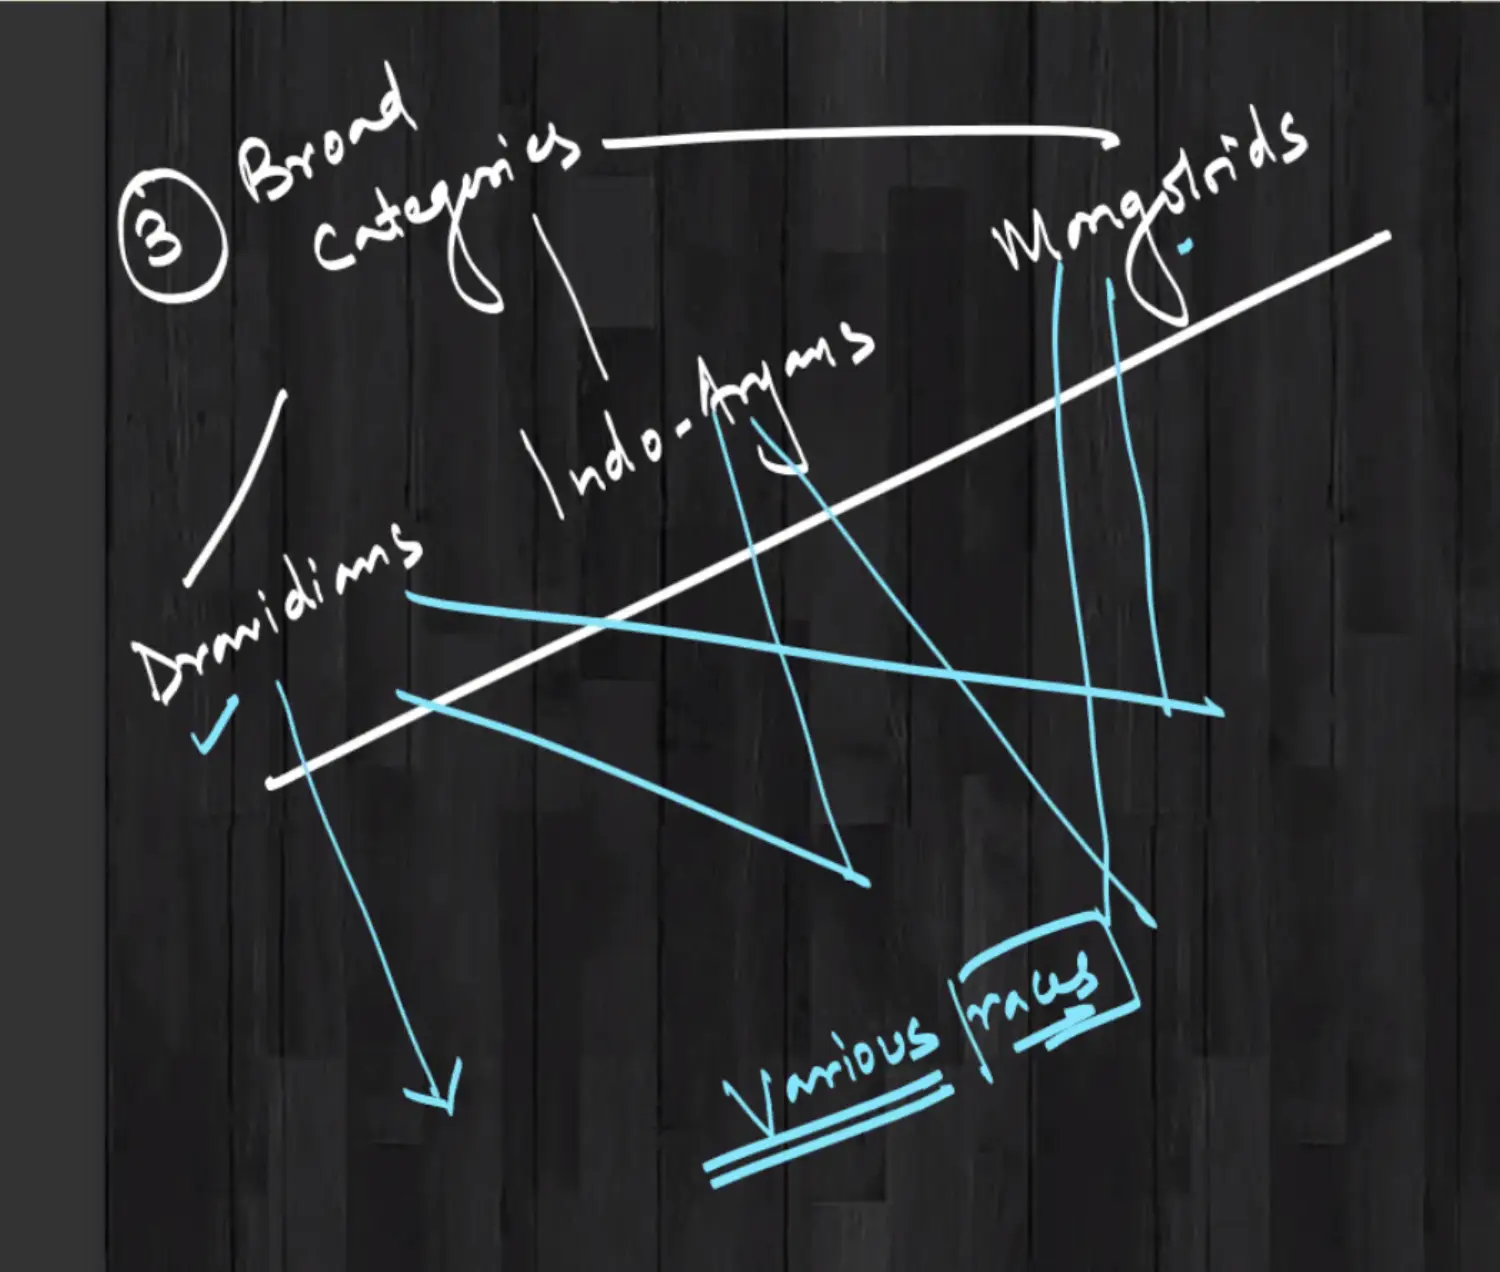 3 Broad
Categories
Mongoloids
Indo-Aryans
Dravidians
Various races